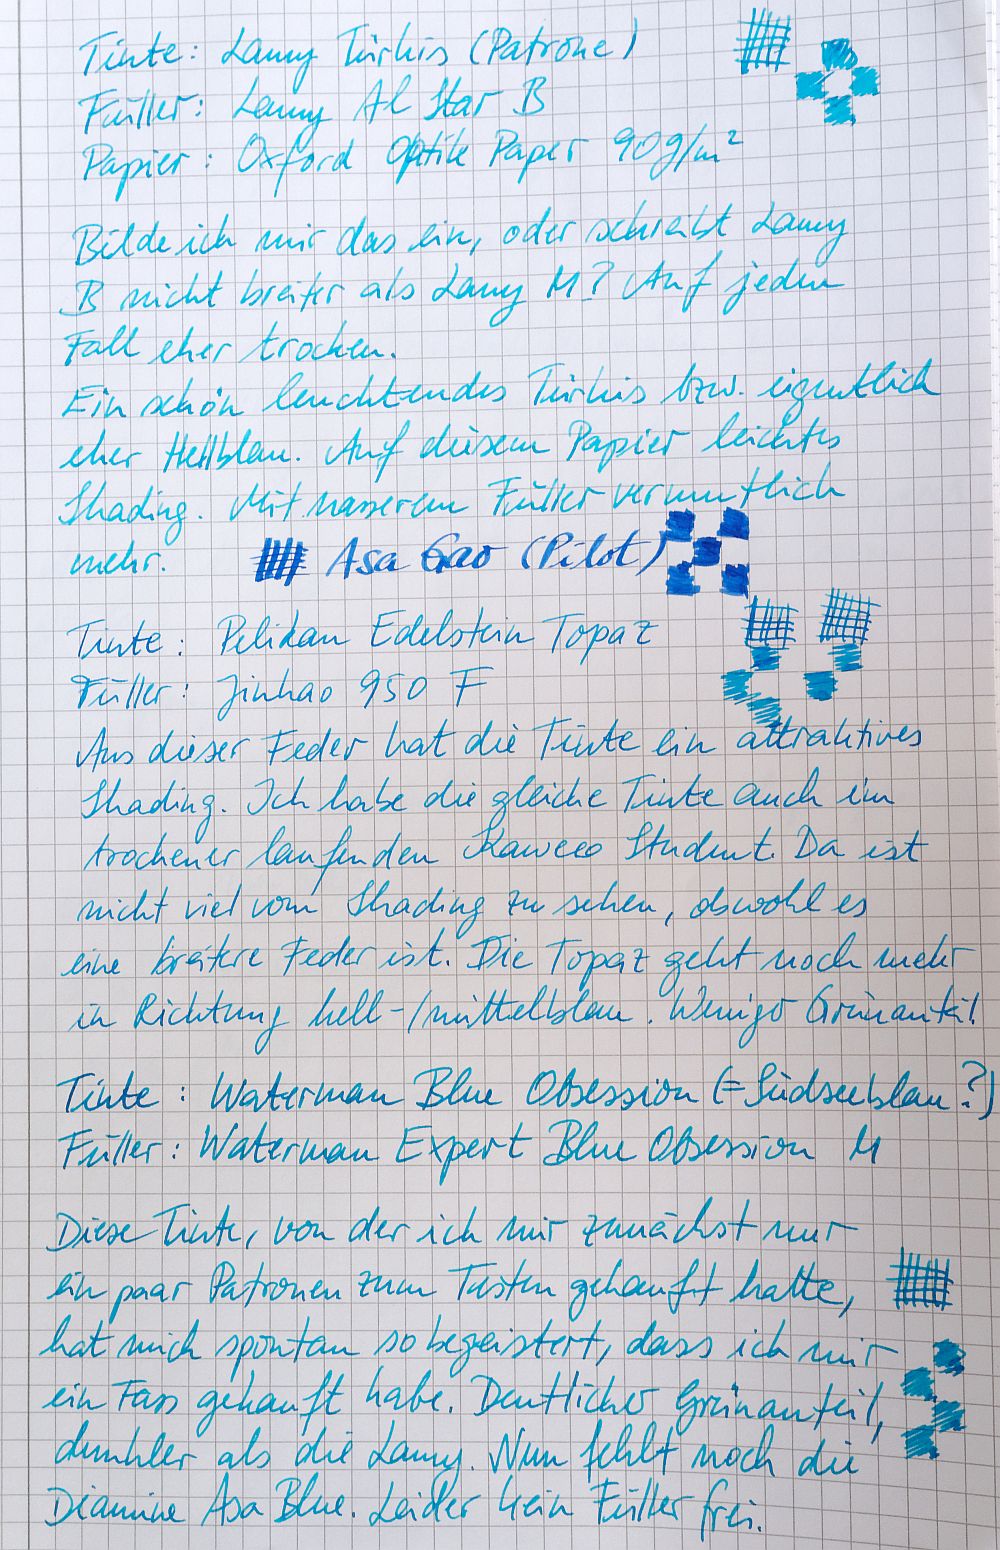 Tinte: Lamy Türkis (Patrone)
Füller: Lamy Al Star B
Papier: Oxford Optik Paper 90g/m²
Bilde ich mir das ein, oder schreibt Lamy
B nicht breiter als Lamy M? Auf jeden
Fall eher trocken.
Ein schön leuchtendes Türkis bzw. eigentlich
eher Hellblau. Auf diesem Papier leichtes
Shading. Mit nasserem Füller vermutlich
mehr.
Asa Gao (Pilot)
Tinte: Pelikan Edelstein Topaz
Füller: Jinhao 950 F
Aus dieser Feder hat die Tinte ein attraktives
Shading. Ich habe die gleiche Tinte auch im
trockener laufenden Kaweco Student. Da ist
nicht viel vom Shading zu sehen, obwohl es
eine breitere Feder ist. Die Topaz geht noch mehr
in Richtung hell-/mittelblau. Weniger Grünanteil
Tinte: Waterman Blue Obsession (= Südseeblau?)
Füller: Waterman Expert Blue Obsession M
Diese Tinte, von der ich mir zunächst nur
ein paar Patronen zum Testen gekauft hatte,
hat mich spontan so begeistert, dass ich mir
ein Fass gekauft habe. Deutlicher Grünanteil,
dunkler als die Lamy. Nun fehlt noch die
Diamine Asa Blue. Leider kein Füller frei.